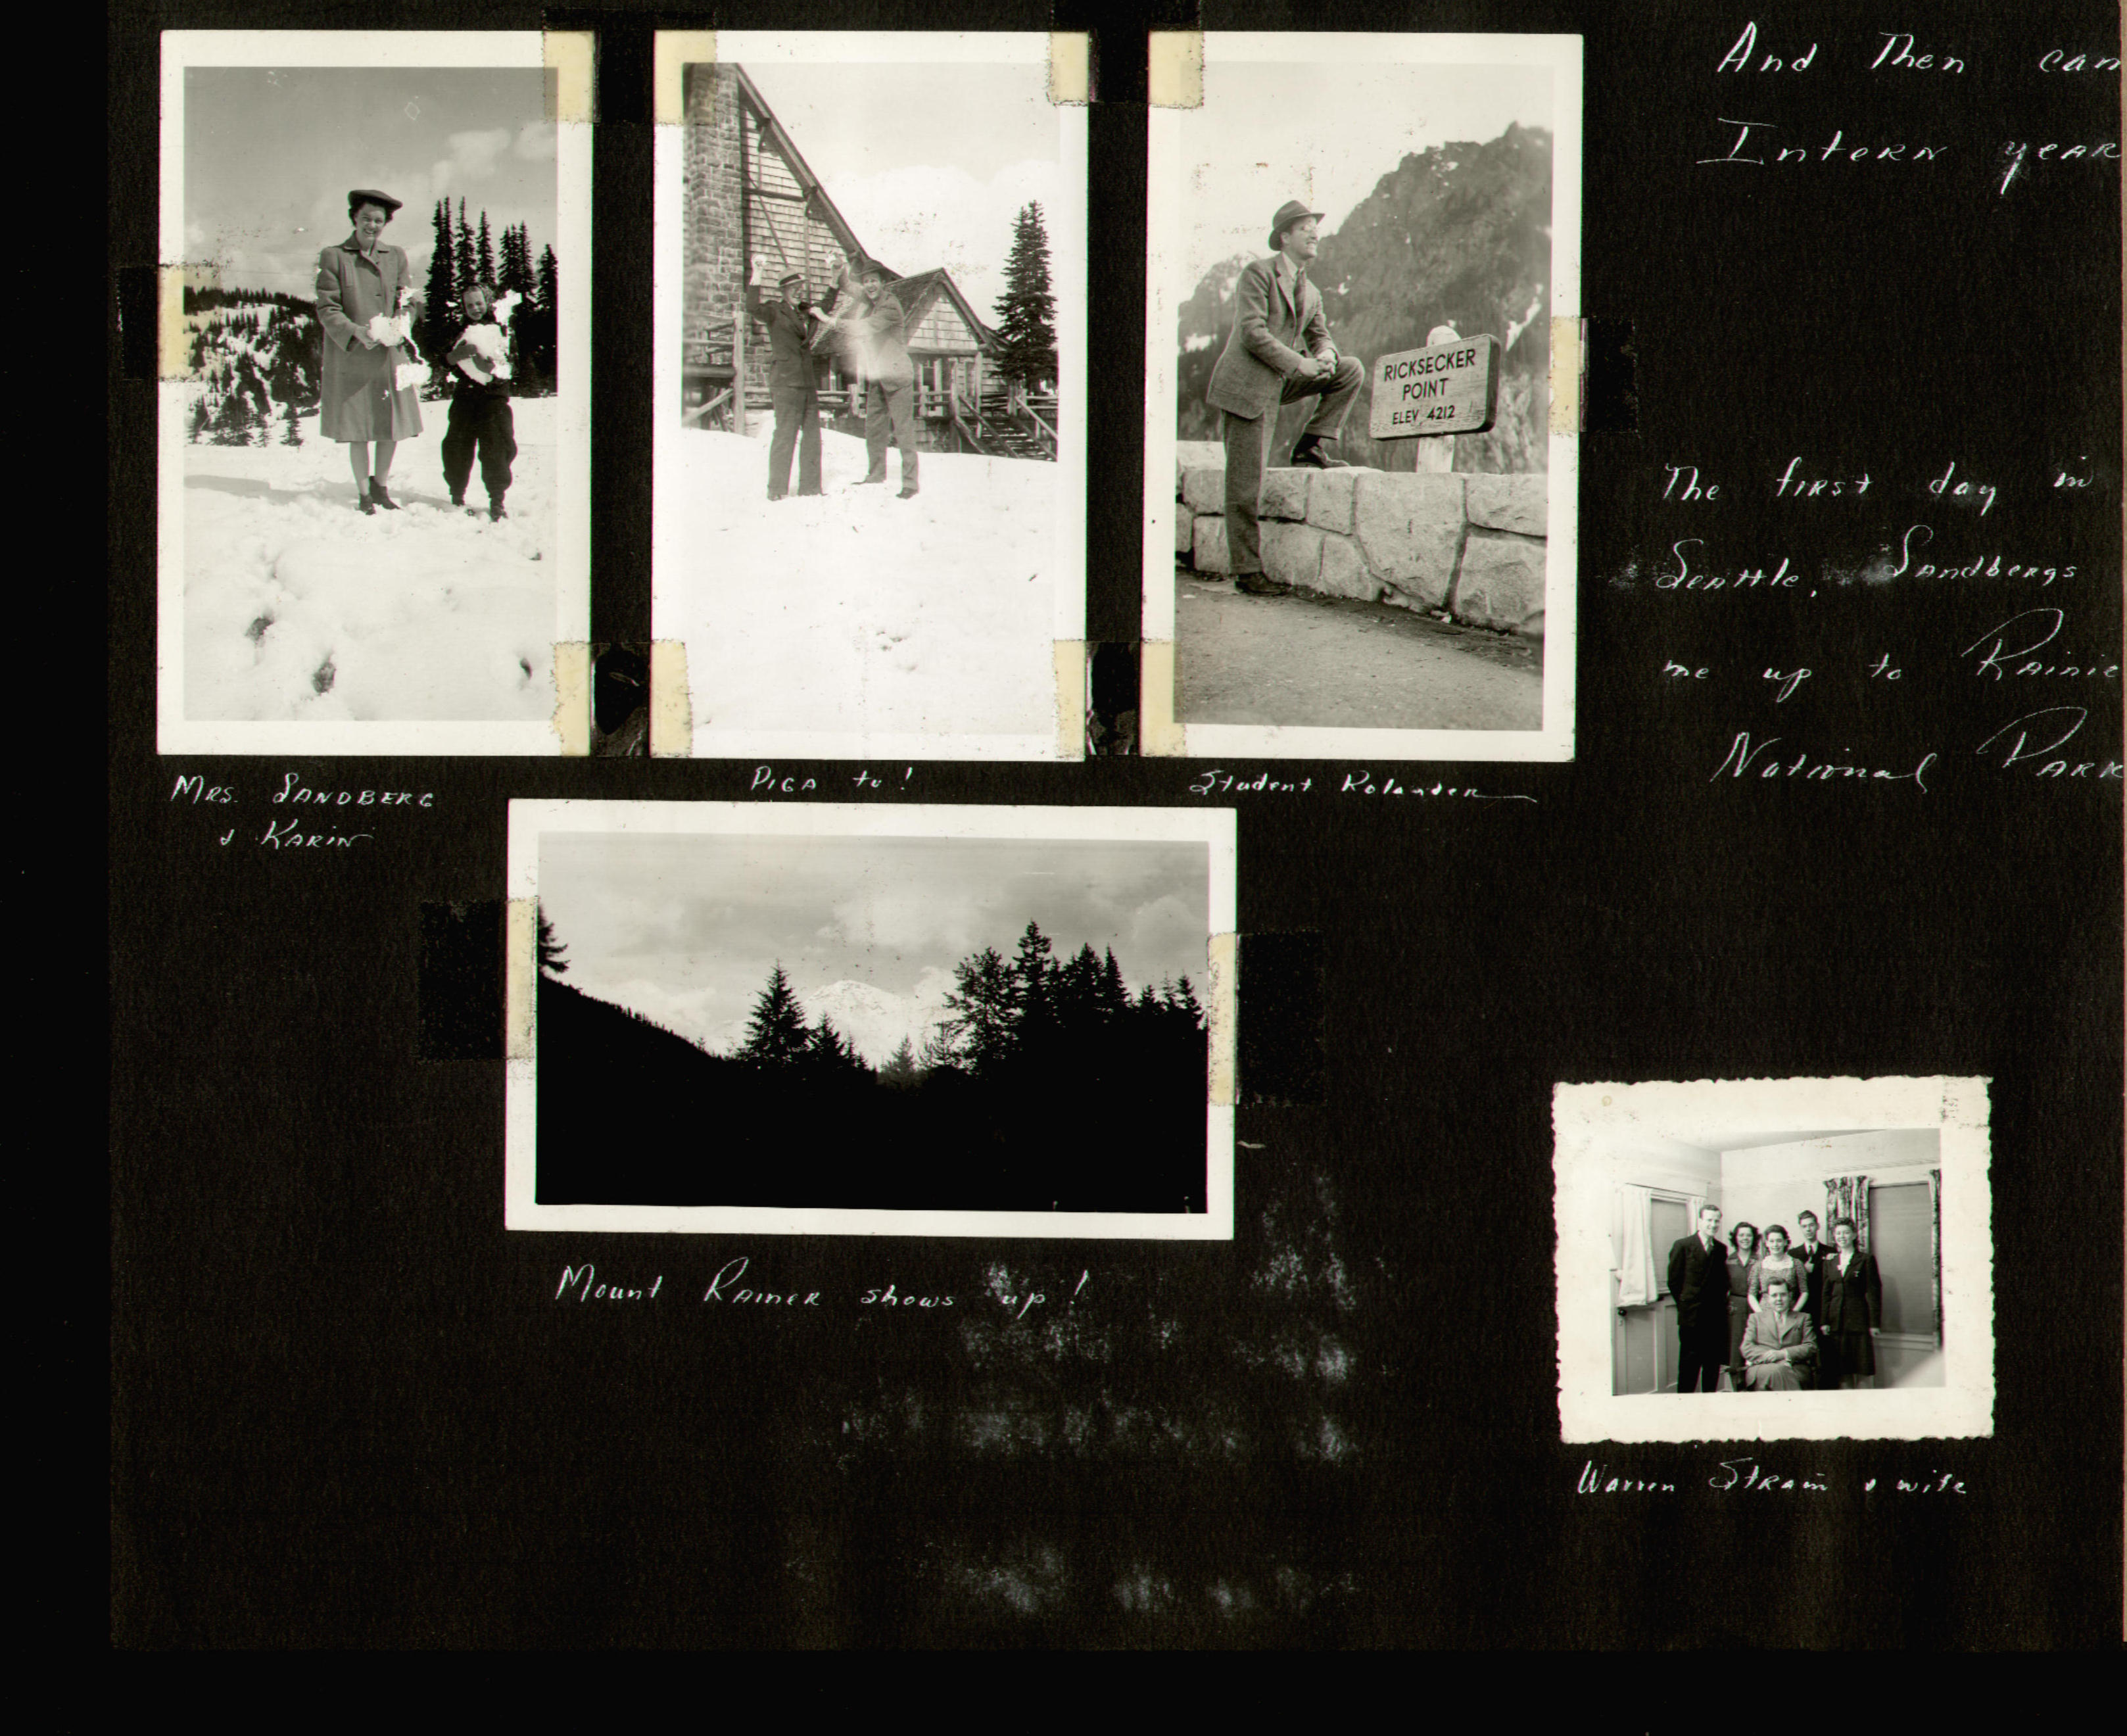 And Then cam
Intern year
RICKSECKER
POINT
ELEV 4212
The first day in
Seattle, Sandbergs
me up to Rainie
National Park
Mrs. Sandberg
& Karin
Piga tu!
Student Rolander
Mount Rainer shows up!
Warren Strain & wife